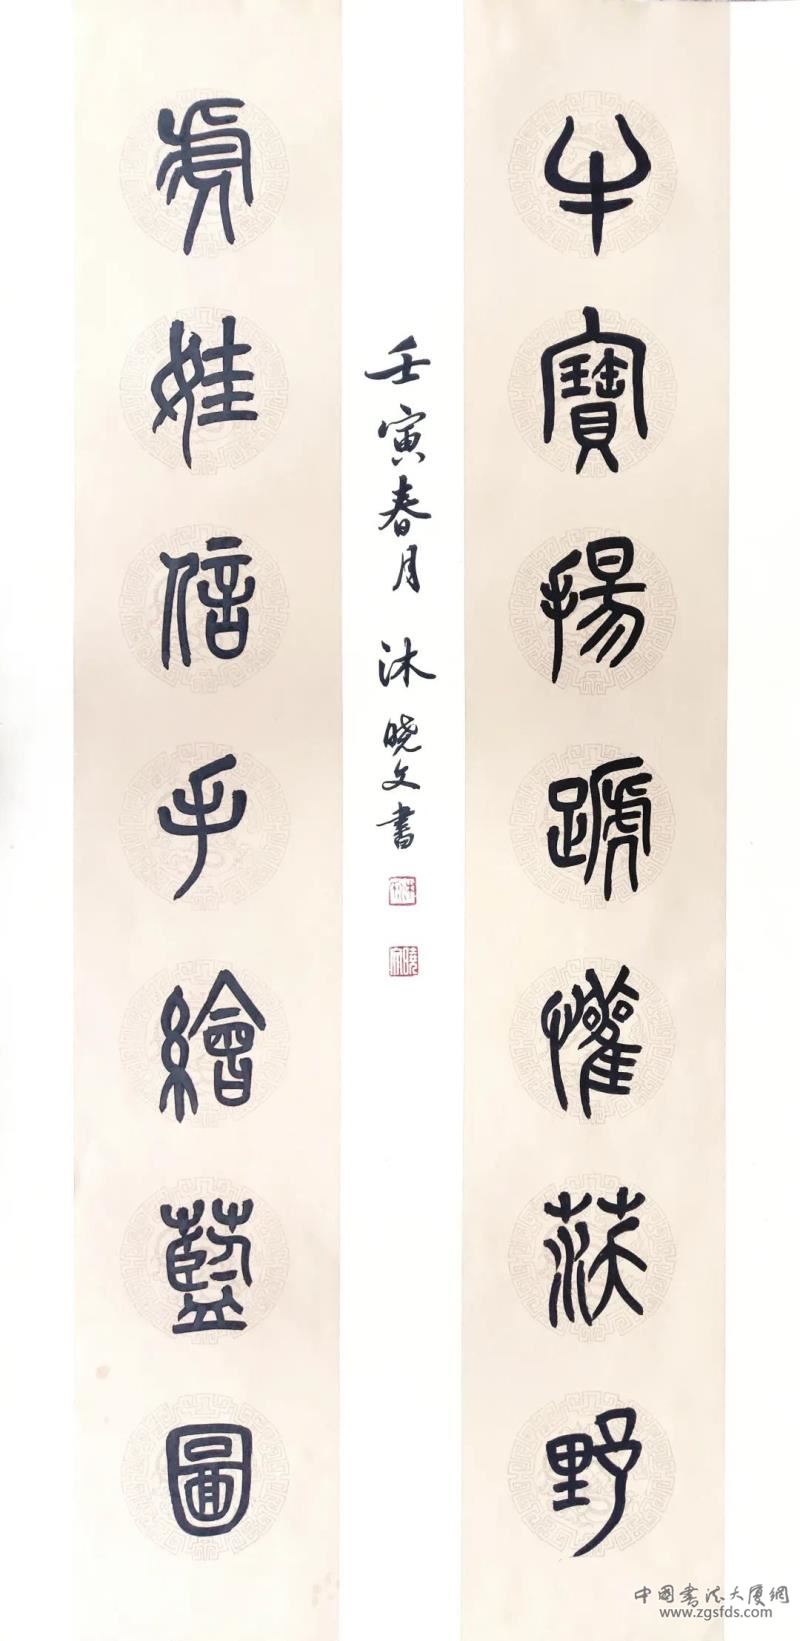 牛寶揚蹏懽沃野
虎娃信手繪藍圖
壬寅春月 沐晓文書
中國書法大厦網
www.zgsfds.com